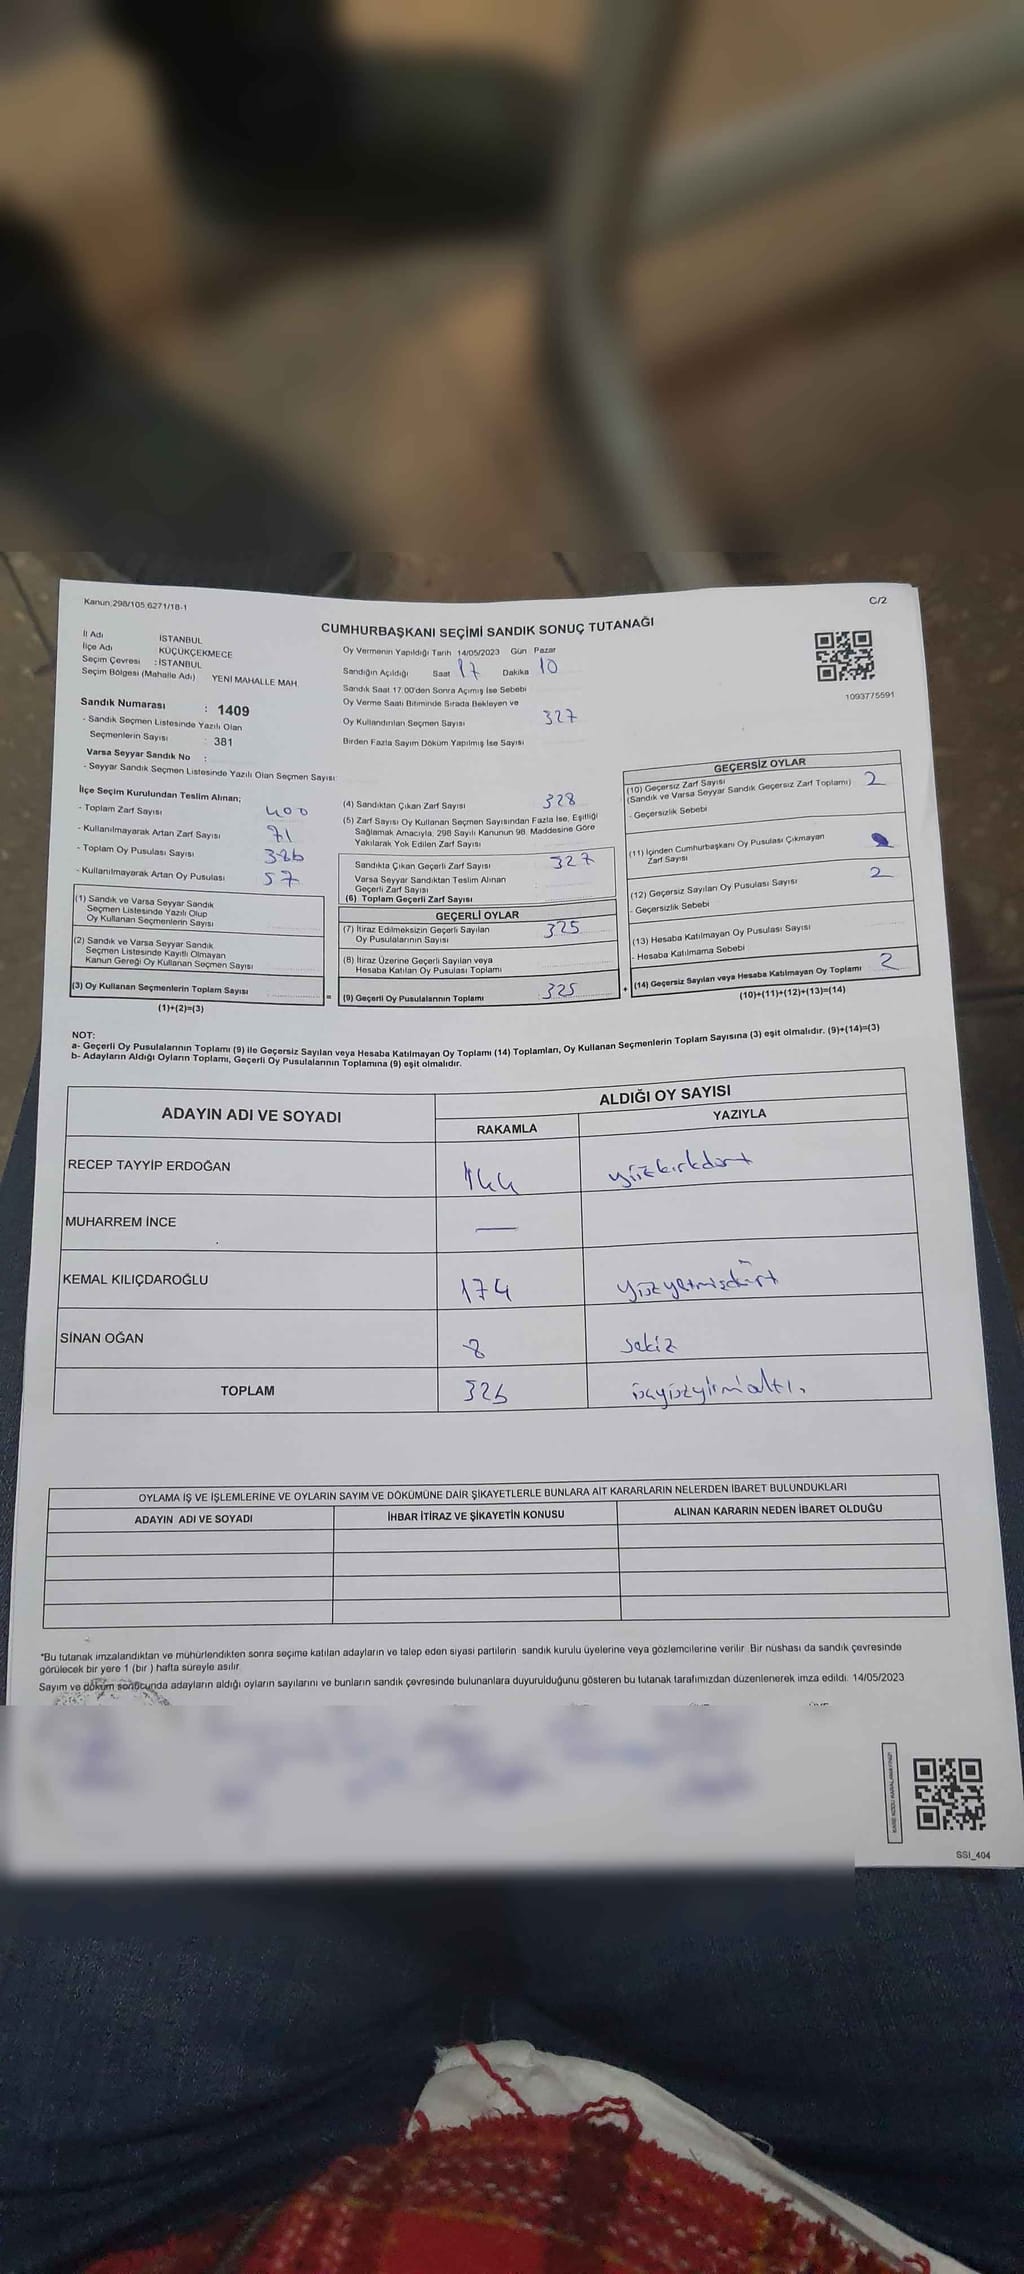 Kanun 298/105,6271/18-1
C/2
CUMHURBAŞKANI SEÇİMİ SANDIK SONUÇ TUTANAĞI
İl Adı İSTANBUL
İlçe Adı : KÜÇÜKÇEKMECE
Seçim Çevresi : İSTANBUL
Seçim Bölgesi (Mahalle Adı) YENİ MAHALLE MAH
Sandık Numarası : 1409
- Sandık Seçmen Listesinde Yazılı Olan
Seçmenlerin Sayısı : 381
Varsa Seyyar Sandık No :
- Seyyar Sandık Seçmen Listesinde Yazılı Olan Seçmen Sayısı:
Oy Vermenin Yapıldığı Tarih 14/05/2023 Gün Pazar
Sandığın Açıldığı Saat 17 Dakika 10
Sandık Saat 17.00'den Sonra Açımış İse Sebebi
Oy Verme Saati Bitiminde Sırada Bekleyen ve
Oy Kullandırılan Seçmen Sayısı 327
Birden Fazla Sayım Döküm Yapılmış İse Sayısı
1093775591
İlçe Seçim Kurulundan Teslim Alınan;
- Toplam Zarf Sayısı 400
- Kullanılmayarak Artan Zarf Sayısı 71
- Toplam Oy Pusulası Sayısı 386
- Kullanılmayarak Artan Oy Pusulası 57
(1) Sandık ve Varsa Seyyar Sandık
Seçmen Listesinde Yazılı Olup
Oy Kullanan Seçmenlerin Sayısı
(2) Sandık ve Varsa Seyyar Sandık
Seçmen Listesinde Kayıtlı Olmayan
Kanun Gereği Oy Kullanan Seçmen Sayısı
(3) Oy Kullanan Seçmenlerin Toplam Sayısı
(1)+(2)=(3)
(4) Sandıktan Çıkan Zarf Sayısı 328
(5) Zarf Sayısı Oy Kullanan Seçmen Sayısından Fazla İse, Eşitliği
Sağlamak Amacıyla, 298 Sayılı Kanunun 98. Maddesine Göre
Yakılarak Yok Edilen Zarf Sayısı
Sandıkta Çıkan Geçerli Zarf Sayısı 327
Varsa Seyyar Sandıktan Teslim Alınan
Geçerli Zarf Sayısı
(6) Toplam Geçerli Zarf Sayısı
GEÇERLİ OYLAR
(7) İtiraz Edilmeksizin Geçerli Sayılan
Oy Pusulalarının Sayısı 325
(8) İtiraz Üzerine Geçerli Sayılan veya
Hesaba Katılan Oy Pusulası Toplamı
= (9) Geçerli Oy Pusulalarının Toplamı 325
GEÇERSİZ OYLAR
(10) Geçersiz Zarf Sayısı
(Sandık ve Varsa Seyyar Sandık Geçersiz Zarf Toplamı) 2
- Geçersizlik Sebebi
(11) İçinden Cumhurbaşkanı Oy Pusulası Çıkmayan
Zarf Sayısı
(12) Geçersiz Sayılan Oy Pusulası Sayısı 2
- Geçersizlik Sebebi
(13) Hesaba Katılmayan Oy Pusulası Sayısı
- Hesaba Katılmama Sebebi
+ (14) Geçersiz Sayılan veya Hesaba Katılmayan Oy Toplamı 2
(10)+(11)+(12)+(13)=(14)
NOT:
a- Geçerli Oy Pusulalarının Toplamı (9) ile Geçersiz Sayılan veya Hesaba Katılmayan Oy Toplamı (14) Toplamları, Oy Kullanan Seçmenlerin Toplam Sayısına (3) eşit olmalıdır. (9)+(14)=(3)
b- Adayların Aldığı Oyların Toplamı, Geçerli Oy Pusulalarının Toplamına (9) eşit olmalıdır.
ADAYIN ADI VE SOYADI ALDIĞI OY SAYISI
RAKAMLA YAZIYLA
RECEP TAYYİP ERDOĞAN 144 yüzkırkdört
MUHARREM İNCE —
KEMAL KILIÇDAROĞLU 174 yüzyetmişdört
SİNAN OĞAN 8 sekiz
TOPLAM 326 üçyüzyirmialtı.
OYLAMA İŞ VE İŞLEMLERİNE VE OYLARIN SAYIM VE DÖKÜMÜNE DAİR ŞİKAYETLERLE BUNLARA AİT KARARLARIN NELERDEN İBARET BULUNDUKLARI
ADAYIN ADI VE SOYADI İHBAR İTİRAZ VE ŞİKAYETİN KONUSU ALINAN KARARIN NEDEN İBARET OLDUĞU
*Bu tutanak imzalandıktan ve mühürlendikten sonra seçime katılan adayların ve talep eden siyasi partilerin sandık kurulu üyelerine veya gözlemcilerine verilir. Bir nüshası da sandık çevresinde
görülecek bir yere 1 (bir ) hafta süreyle asılır.
Sayım ve döküm sonucunda adayların aldığı oyların sayılarını ve bunların sandık çevresinde bulunanlara duyurulduğunu gösteren bu tutanak tarafımızdan düzenlenerek imza edildi. 14/05/2023
SSI_404